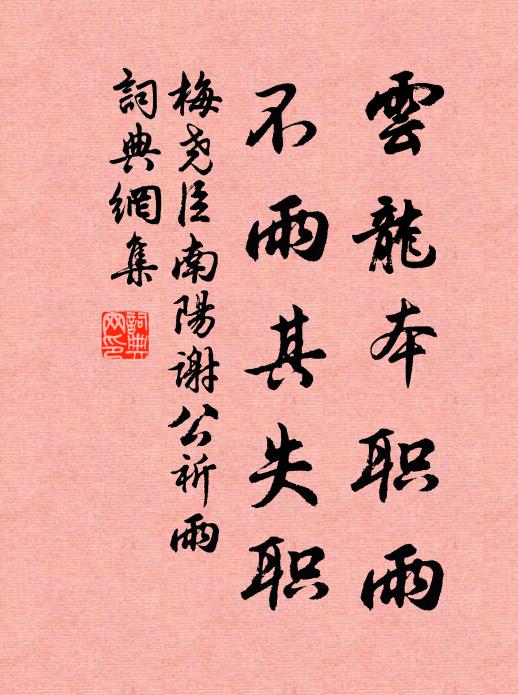 雲龍本职雨
不雨其失职
梅尧臣南陽谢公祈雨
詞典網集
詞典網印